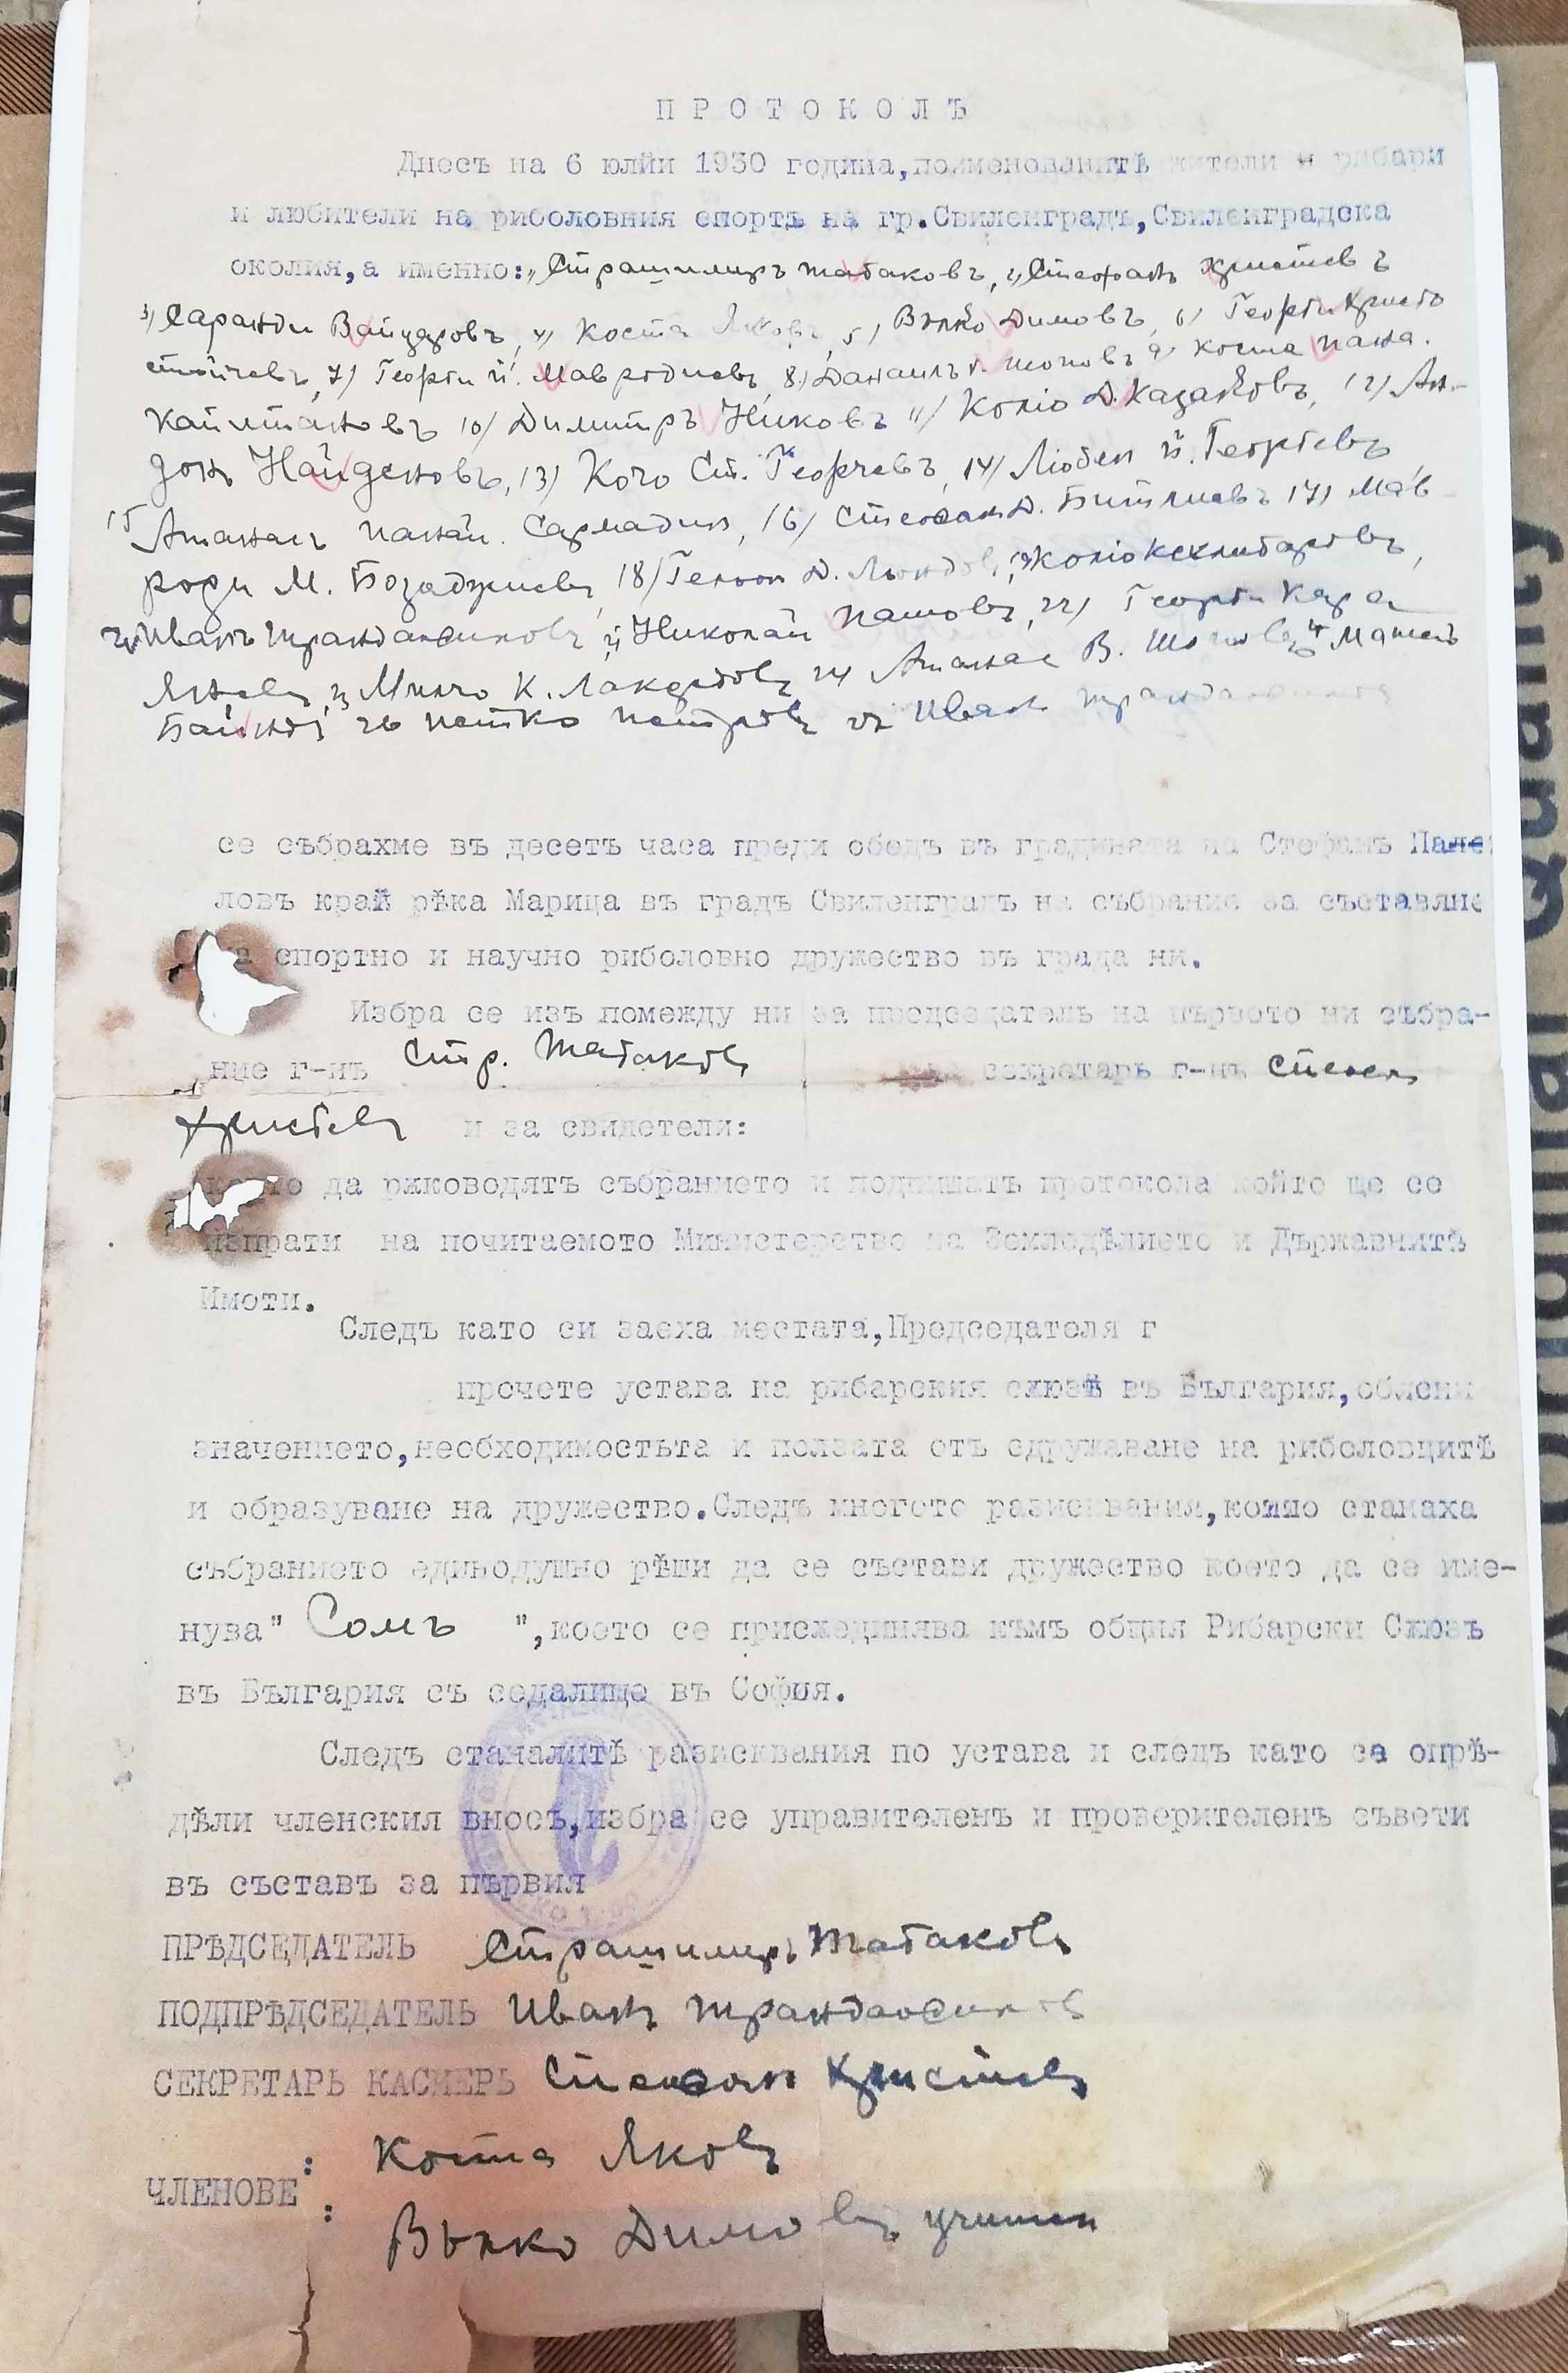 ПРОТОКОЛЪ
Днесъ на 6 юлйи 1930 година, поименованитѣ жители и рибари
и любители на риболовния спортъ на гр. Свиленградъ, Свиленградска
околия, а именно: 1) Страшимиръ Табаковъ, 2) Стефанъ Христевъ
3) Саранди Вайцаровъ, 4) Коста Яковъ, 5) Вълко Димовъ, 6) Георги Христо
Стойчевъ, 7) Георги й. Мавродиевъ, 8) Данаилъ Г. Топовъ 9) Коста Пана.
Капитановъ 10) Димитръ Никовъ 11) Колю Д. Казаковъ, 12) Ан-
дон Найденовъ, 13) Кочо Ст. Георчевъ, 14) Любен й. Георгевъ,
15 Атанасъ Панай. Сармадин, 16) Стефан Д. Битлиевъ 17) Мав-
роди М. Бозаджиевъ, 18) Д. 19 Колю Кехлибаровъ,
20 Иванъ Трандафиловъ, 21 Николай Пашовъ, 22) Георги Кара
Яневъ, 23 Минчо К. 24 Атанас В. Матей
Байнов 26 Петко Петровъ 27 Иван Трандафилов
се събрахме въ десетъ часа преди обедъ въ градината на Стефанъ
ловъ край рѣка Марица въ градъ Свиленградъ на събрание за съставяне
на спортно и научно риболовно дружество въ града ни.
Избра се изъ помежду ни за председатель на първото ни събра-
ние г-нъ Стр. Табаковъ за секретаръ г-нъ Стефан
Христевъ и за свидетели:
които да рѫководятъ събранието и подпишатъ протокола който ще се
изпрати на почитаемото Министерство на Земледѣлието и Държавнитѣ
Имоти.
Следъ като си заеха местата, Председателя г
прочете устава на рибарския сѫюзъ въ България, обясни
значението, необходимостьта и ползата отъ сдружаване на риболовцитѣ
и образуване на дружество. Следъ многото разисквания, които станаха
събранието единодушно рѣши да се състави дружество което да се име-
нува " Сомъ ", което се присѫединява къмъ общия Рибарски Сѫюзъ
въ България съ седалище въ София.
Следъ станалитѣ разисквания по устава и следъ като се опрѣ-
дѣли членския вносъ, избра се управителенъ и проверителенъ съвети
въ съставъ за първия
ПРѢДСЕДАТЕЛЬ Страшимиръ Табаковъ
ПОДПРѢДСЕДАТЕЛЬ Иванъ Трандафилов
СЕКРЕТАРЬ КАСИЕРЬ Стефан Христевъ
: Коста Яковъ
ЧЛЕНОВЕ
: Вълко Димовъ учител